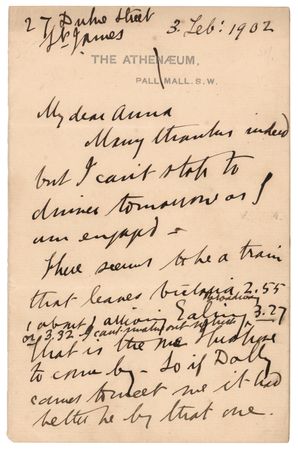 27 Duke Street
St James
3. Feb: 1902
THE ATHENÆUM,
PALL MALL. S.W.
My dear Anna
Many thanks indeed
but I can't stop to
dinner tomorrow as I
am engaged -
There seems to be a train
that leaves Victoria 2.55
(about) arriving Ealing Broadway 3.27
or 3.32 - I can't make out
That is the one
to come by - So if Dolly
comes to meet me it had
better be by that one.